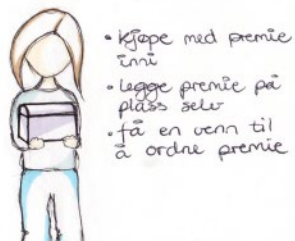 • kjøpe med premie
inni
• legge premie på
plass selv
• få en venn til
å ordne premie